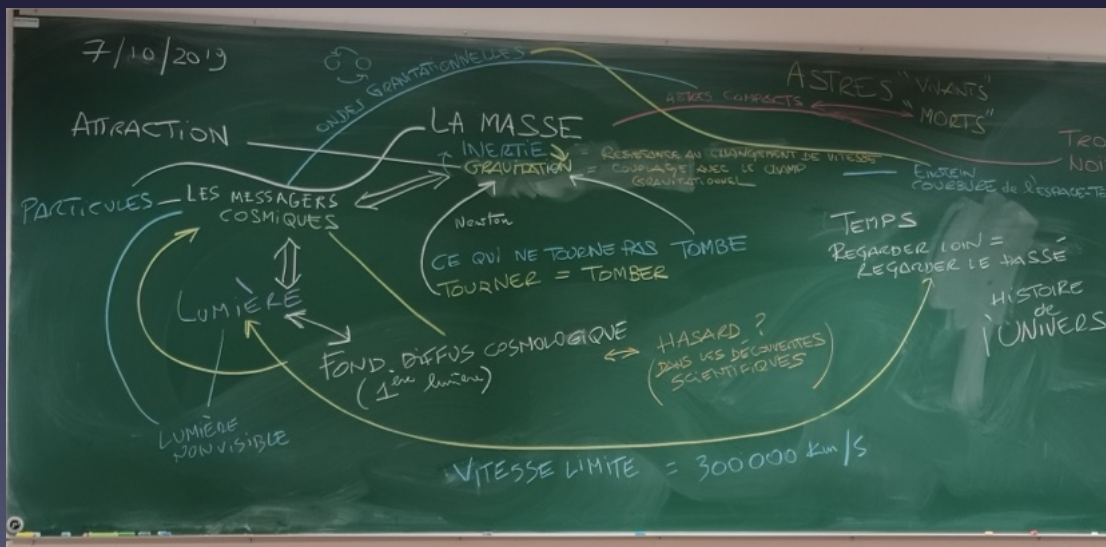 7/10/2019
ONDES GRAVITATIONNELLES
ASTRES "VIVANTS"
"MORTS"
ASTRES COMPACTS
ATTRACTION
LA MASSE
TRO
NOI
INERTIE = RESISTANCE AU CHANGEMENT DE VITESSE
GRAVITATION = COUPLAGE AVEC LE CHAMP
GRAVITATIONNEL
EINSTEIN
COURBURE de l'ESPACE-TE
PARTICULES
LES MESSAGERS
COSMIQUES
Newton
CE QUI NE TOURNE PAS TOMBE
TOURNER = TOMBER
TEMPS
REGARDER LOIN =
REGARDER LE PASSÉ
HISTOIRE
de
l'UNIVERS
LUMIÈRE
FOND DIFFUS COSMOLOGIQUE
(1ère lumière)
HASARD ?
(DANS LES DÉCOUVERTES
SCIENTIFIQUES)
LUMIÈRE
NON VISIBLE
VITESSE LIMITE = 300 000 km/s